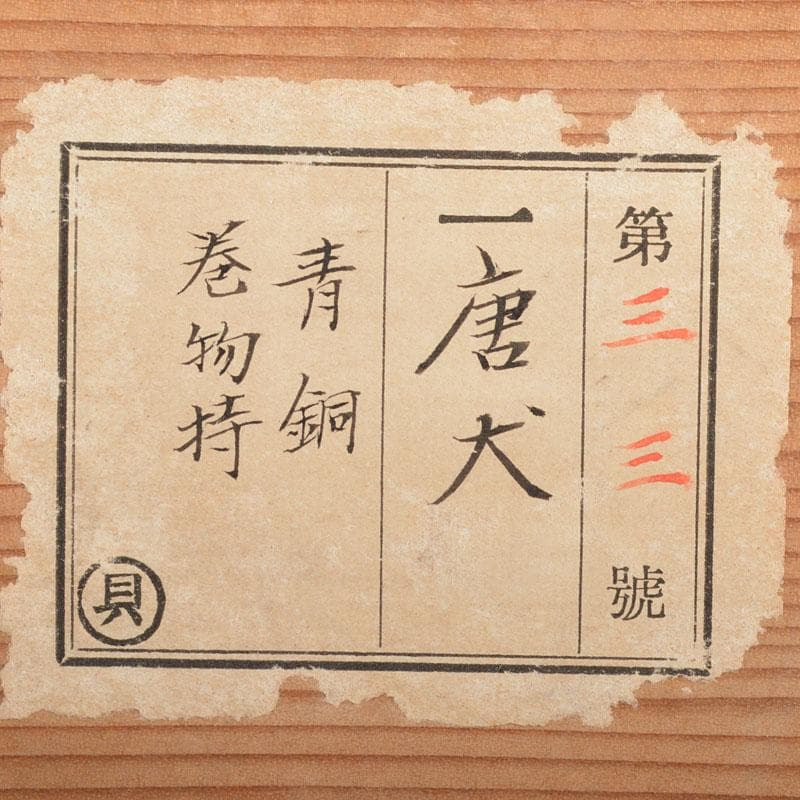 第三三號
一唐犬
青銅
巻物持
貝